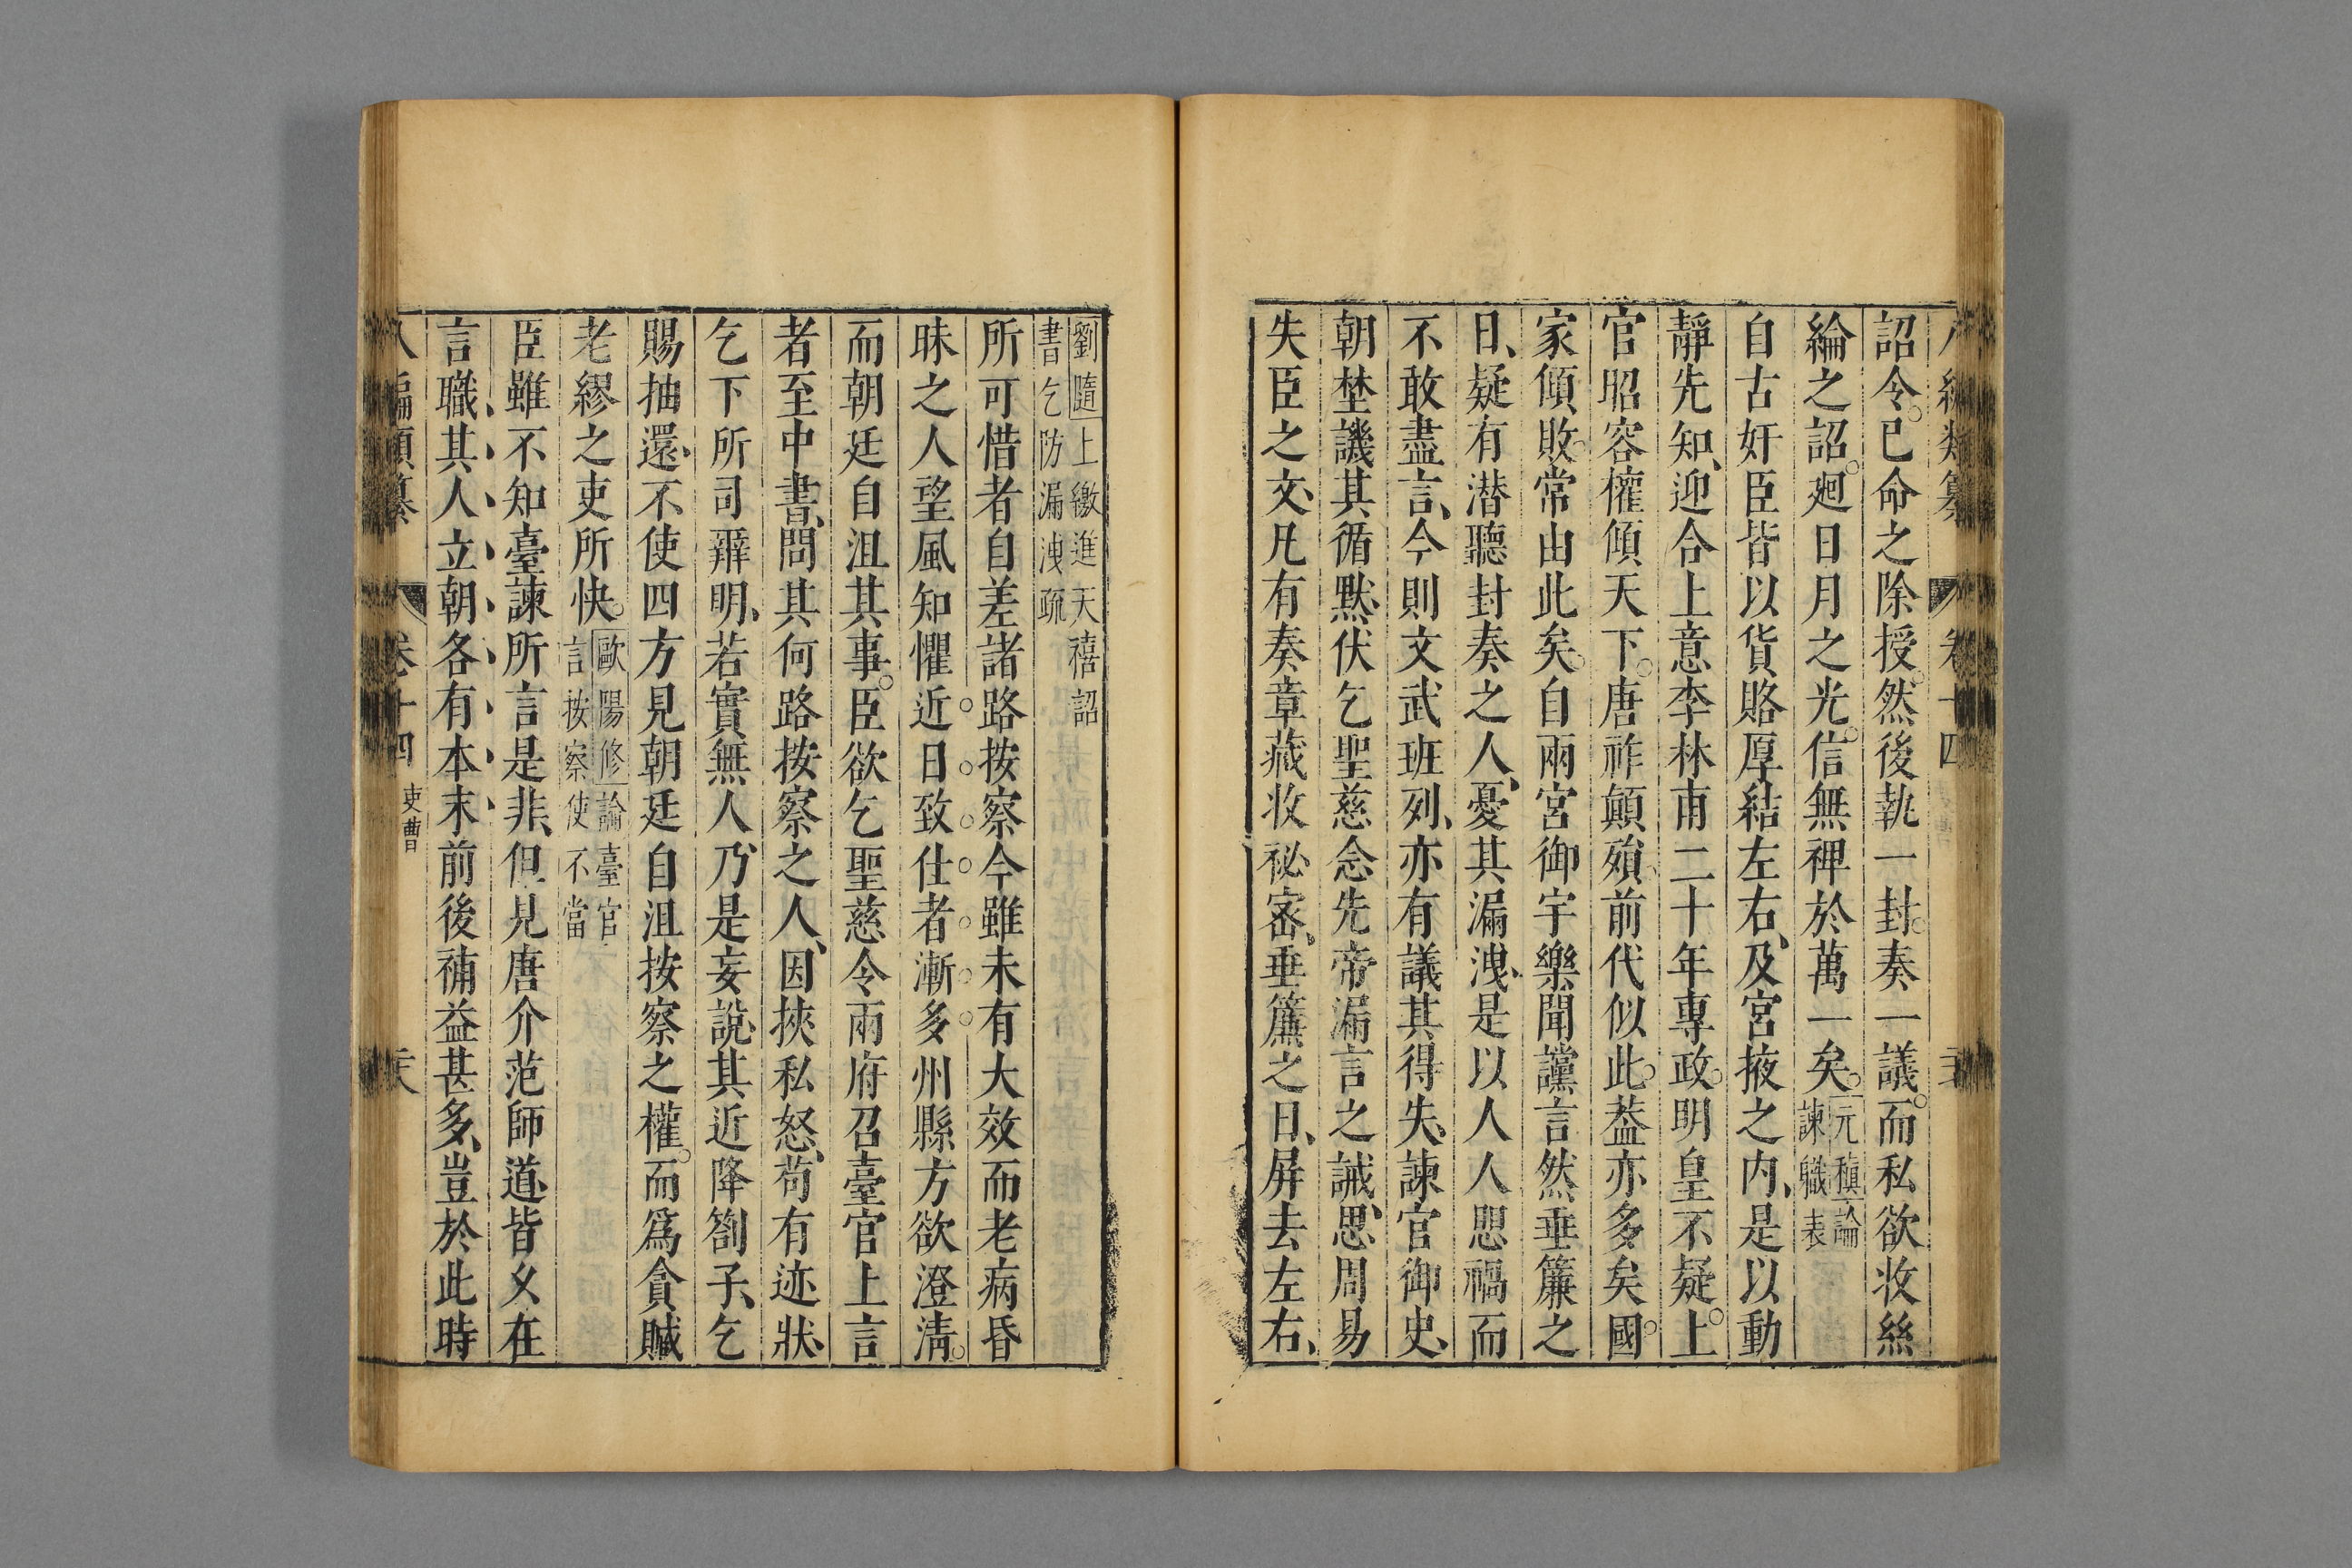 詔令已命之除授然後執一封奏一議而私欲收絲
綸之詔廻日月之光信無裨於萬一矣元稹論諫職表
自古奸臣皆以貨賂厚結左右及宮掖之内是以動
靜先知迎合上意李林甫二十年專政明皇不疑上
官昭容權傾天下唐祚顛殞前代似此葢亦多矣國
家傾敗常由此矣自兩宮御宇樂聞讜言然垂簾之
日疑有潜聽封奏之人憂其漏洩是以人人思禍而
不敢盡言今則文武班列亦有議其得失諫官御史
朝埜譏其循默伏乞聖慈念先帝漏言之誡思周易
失臣之文凡有奏章藏收祕宻垂簾之日屏去左右
劉隨上繳進天禧詔
書乞防漏洩疏
所可惜者自差諸路按察今雖未有大效而老病昏
昧之人望風知懼近日致仕者漸多州縣方欲澄淸
而朝廷自沮其事臣欲乞聖慈令兩府召臺官上言
者至中書問其何路按察之人因挾私怒苟有迹狀
乞下所司辨明若實無人乃是妄說其近降劄子乞
賜抽還不使四方見朝廷自沮按察之權而爲貪贓
老繆之吏所快歐陽修論臺官言按察使不當
臣雖不知臺諫所言是非但見唐介范師道皆久在
言職其人立朝各有本末前後補益甚多豈於此時
八編類纂 卷十四 吏曹 二十六